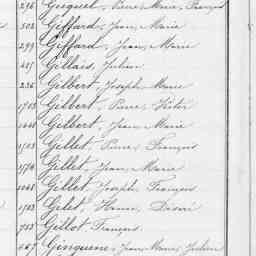 296 Gicquel, Pierre, Marie, François
502 Giffard, Jean, Marie
299 Giffard, Jean, Marie
Gillais, Julien
236 Gilbert, Joseph, Marie
1703 Gilbert, Pierre, Victor
Gilbert, Jean, Marie
1503 Gillet, Pierre, François
Gillet, Jean, Marie
Gillet, Joseph, François
1703 Gillet, Henri, Désiré
753 Gillot François
Ginguené, Jean, Marie, Julien